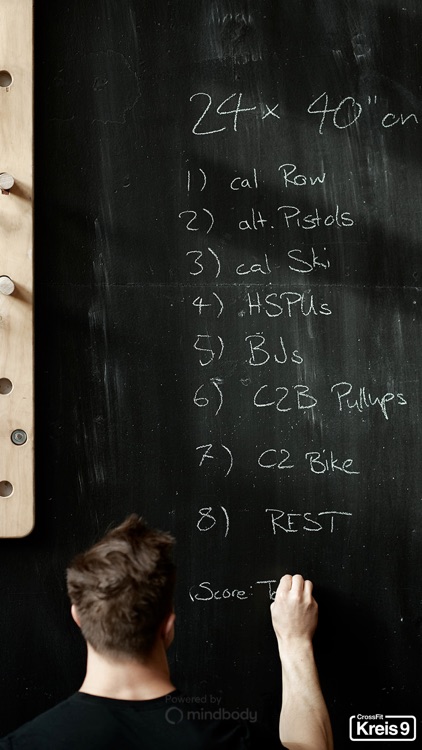 24 x 40" on
1) cal Row
2) alt. Pistols
3) cal Ski
4) HSPUs
5) BJs
6) C2B Pullups
7) C2 Bike
8) REST
(Score:
Powered by
mindbody
CrossFit
Kreis 9